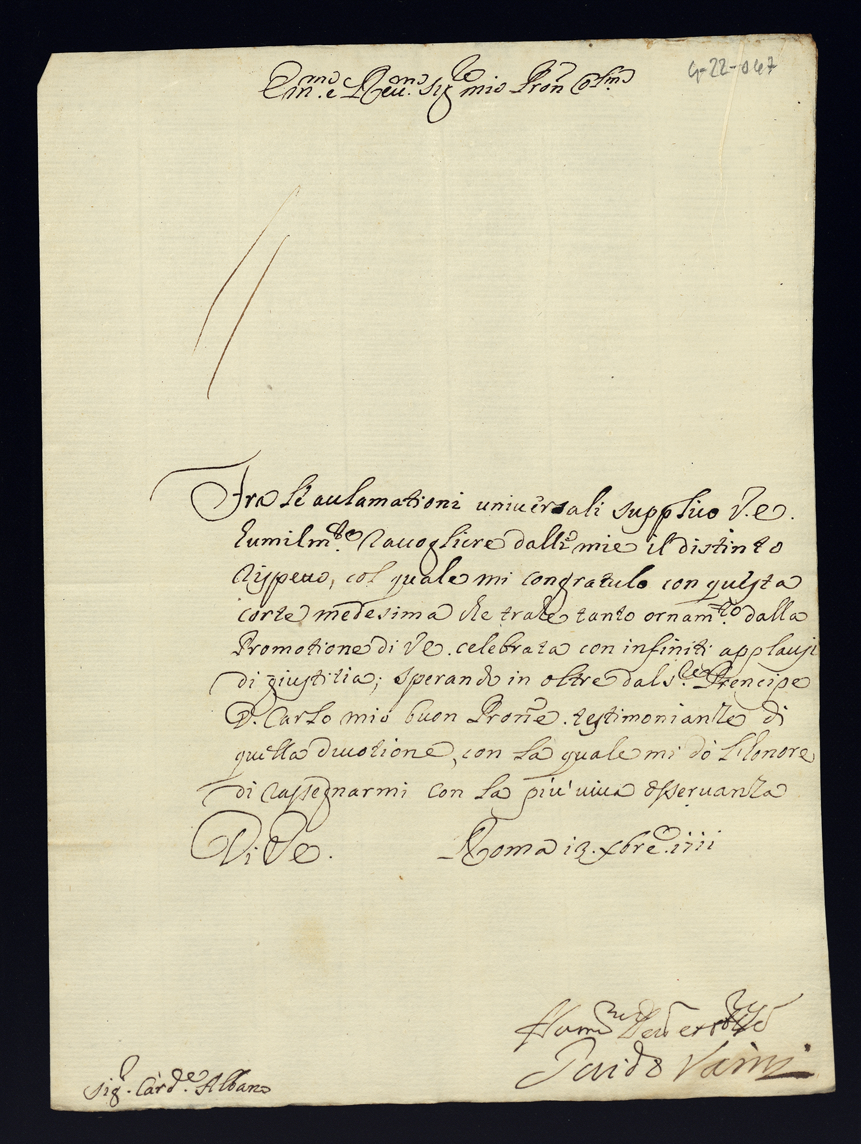 4-22-067
Em.mo e Reu.mo Sig.re mio Pron Col.mo
Fra le acclamationi uniuersali supplico V.e.
humilm.te raccogliere dalle mie il distinto
rispetto, col quale mi congratulo con questa
corte medesima che trahe tanto ornam.to dalla
Promotione di Ve. celebrata con infiniti applausi
di giustitia; sperando in oltre dal S.r Prencipe
D. Carlo mio buon Prone. testimonianze di
quella diuotione, con la quale mi dò l'honore
di rassegnarmi con la più uiua osseruanza
Di Ve. Roma 13. xbre. 1711
Hum.
Guido Vaini
Sig.r Card.e Albano